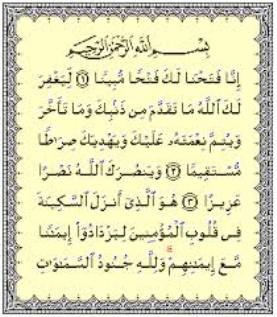 بِسْمِ ٱللَّهِ ٱلرَّحْمَٰنِ ٱلرَّحِيمِ
إِنَّا فَتَحْنَا لَكَ فَتْحًا مُّبِينًا ١ لِّيَغْفِرَ
لَكَ ٱللَّهُ مَا تَقَدَّمَ مِن ذَنۢبِكَ وَمَا تَأَخَّرَ
وَيُتِمَّ نِعْمَتَهُۥ عَلَيْكَ وَيَهْدِيَكَ صِرَٰطًا
مُّسْتَقِيمًا ٢ وَيَنصُرَكَ ٱللَّهُ نَصْرًا
عَزِيزًا ٣ هُوَ ٱلَّذِىٓ أَنزَلَ ٱلسَّكِينَةَ
فِى قُلُوبِ ٱلْمُؤْمِنِينَ لِيَزْدَادُوٓا۟ إِيمَٰنًا
مَّعَ إِيمَٰنِهِمْ ۗ وَلِلَّهِ جُنُودُ ٱلسَّمَٰوَٰتِ